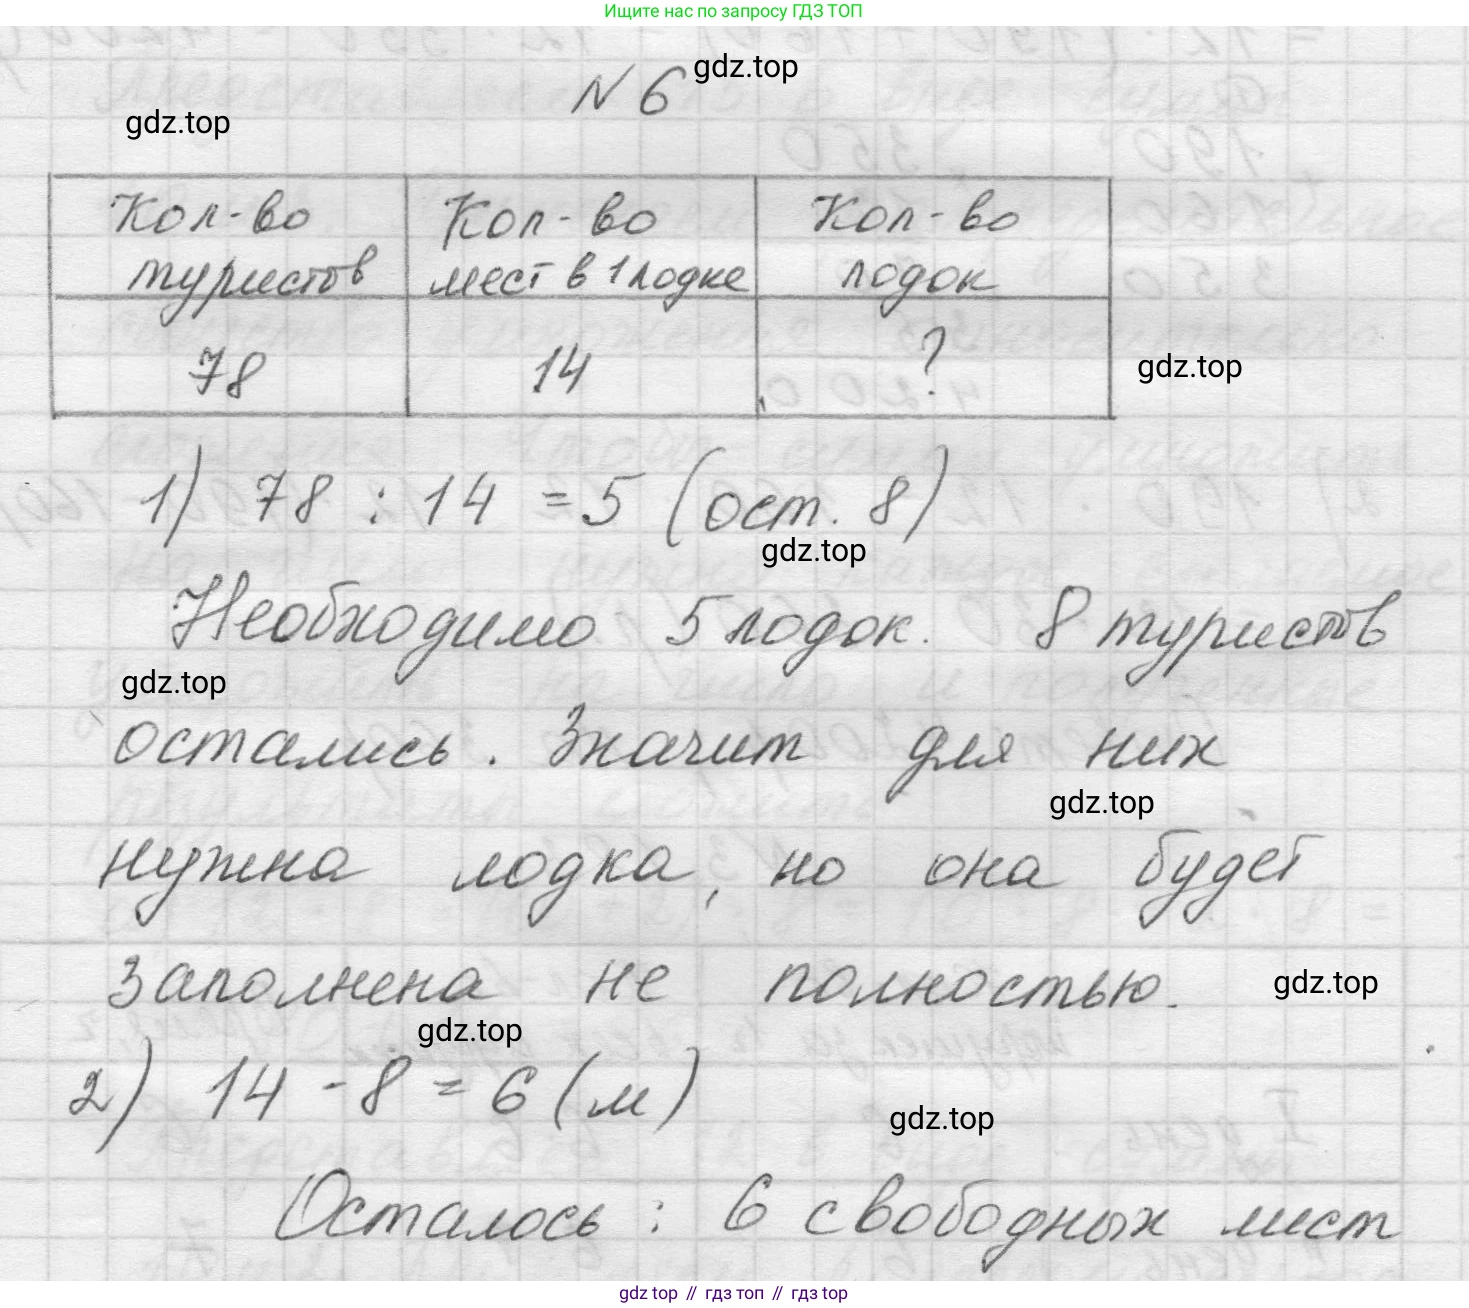 Ищите нас по запросу ГДЗ ТОП
N 6
gdz.top
gdz.top
Кол-во туристов
Кол-во мест в 1 лодке
Кол-во лодок
78
14
?
gdz.top
1) 78 : 14 = 5 (ост. 8)
gdz.top
Необходимо 5 лодок. 8 туристов
gdz.top
остались. Значит для них
gdz.top
нужна лодка, но она будет
заполнена не полностью.
gdz.top
gdz.top
2) 14 - 8 = 6 (м)
gdz.top
Осталось : 6 свободных мест
gdz top // гдз топ // гдз top